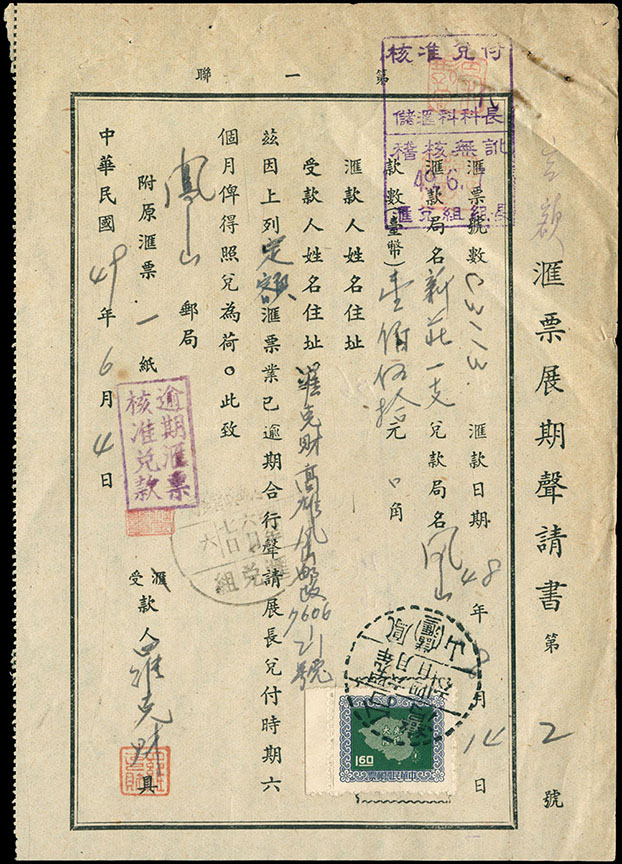 第一聯
定額匯票展期聲請書 第2號
匯票號數 03113 匯款日期 48年 月14日
匯款局名 新莊一支 兌款局名 鳳山
款數(臺幣) 壹佰伍拾元 角
匯款人姓名住址
受款人姓名住址 羅克財高雄鳳山郵政7606 21號
茲因上列定額匯票業已逾期合行聲請展長兌付時期六
個月俾得照兌為荷。此致
鳳山郵局
附原匯票一紙
匯
受
款人 羅克財 具
中華民國49年6月4日
核准兌付
儲匯科科長
稽核無訛
49.6.
匯兌組組長
逾期匯票
核准兌款
匯兌組
鳳山
(儲匯)
1.60
中華民國郵票